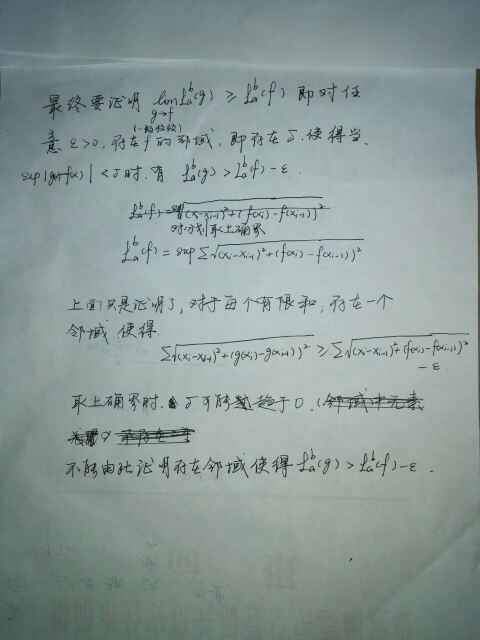 最终要证明 lim L_a^b(g) ≥ L_a^b(f) 即对任
g→f
(一致收敛)
意 ε>0, 存在 f 的邻域, 即存在 δ, 使得当
sup|g(x)-f(x)| < δ 时, 有 L_a^b(g) > L_a^b(f) - ε.
L_a^b(f) = √((x_i-x_{i-1})²+(f(x_i)-f(x_{i-1}))²
对分划取上确界
L_a^b(f) = sup Σ√((x_i-x_{i-1})²+(f(x_i)-f(x_{i-1}))²
上面只是证明了, 对于每个有限和, 存在一个
邻域 使得
Σ√((x_i-x_{i-1})²+(g(x_i)-g(x_{i-1}))² ≥ Σ√((x_i-x_{i-1})²+(f(x_i)-f(x_{i-1}))²
-ε
取上确界时, δ 可能趋于 0. (邻域中元素
不能由此证明存在邻域使得 L_a^b(g) > L_a^b(f) - ε.